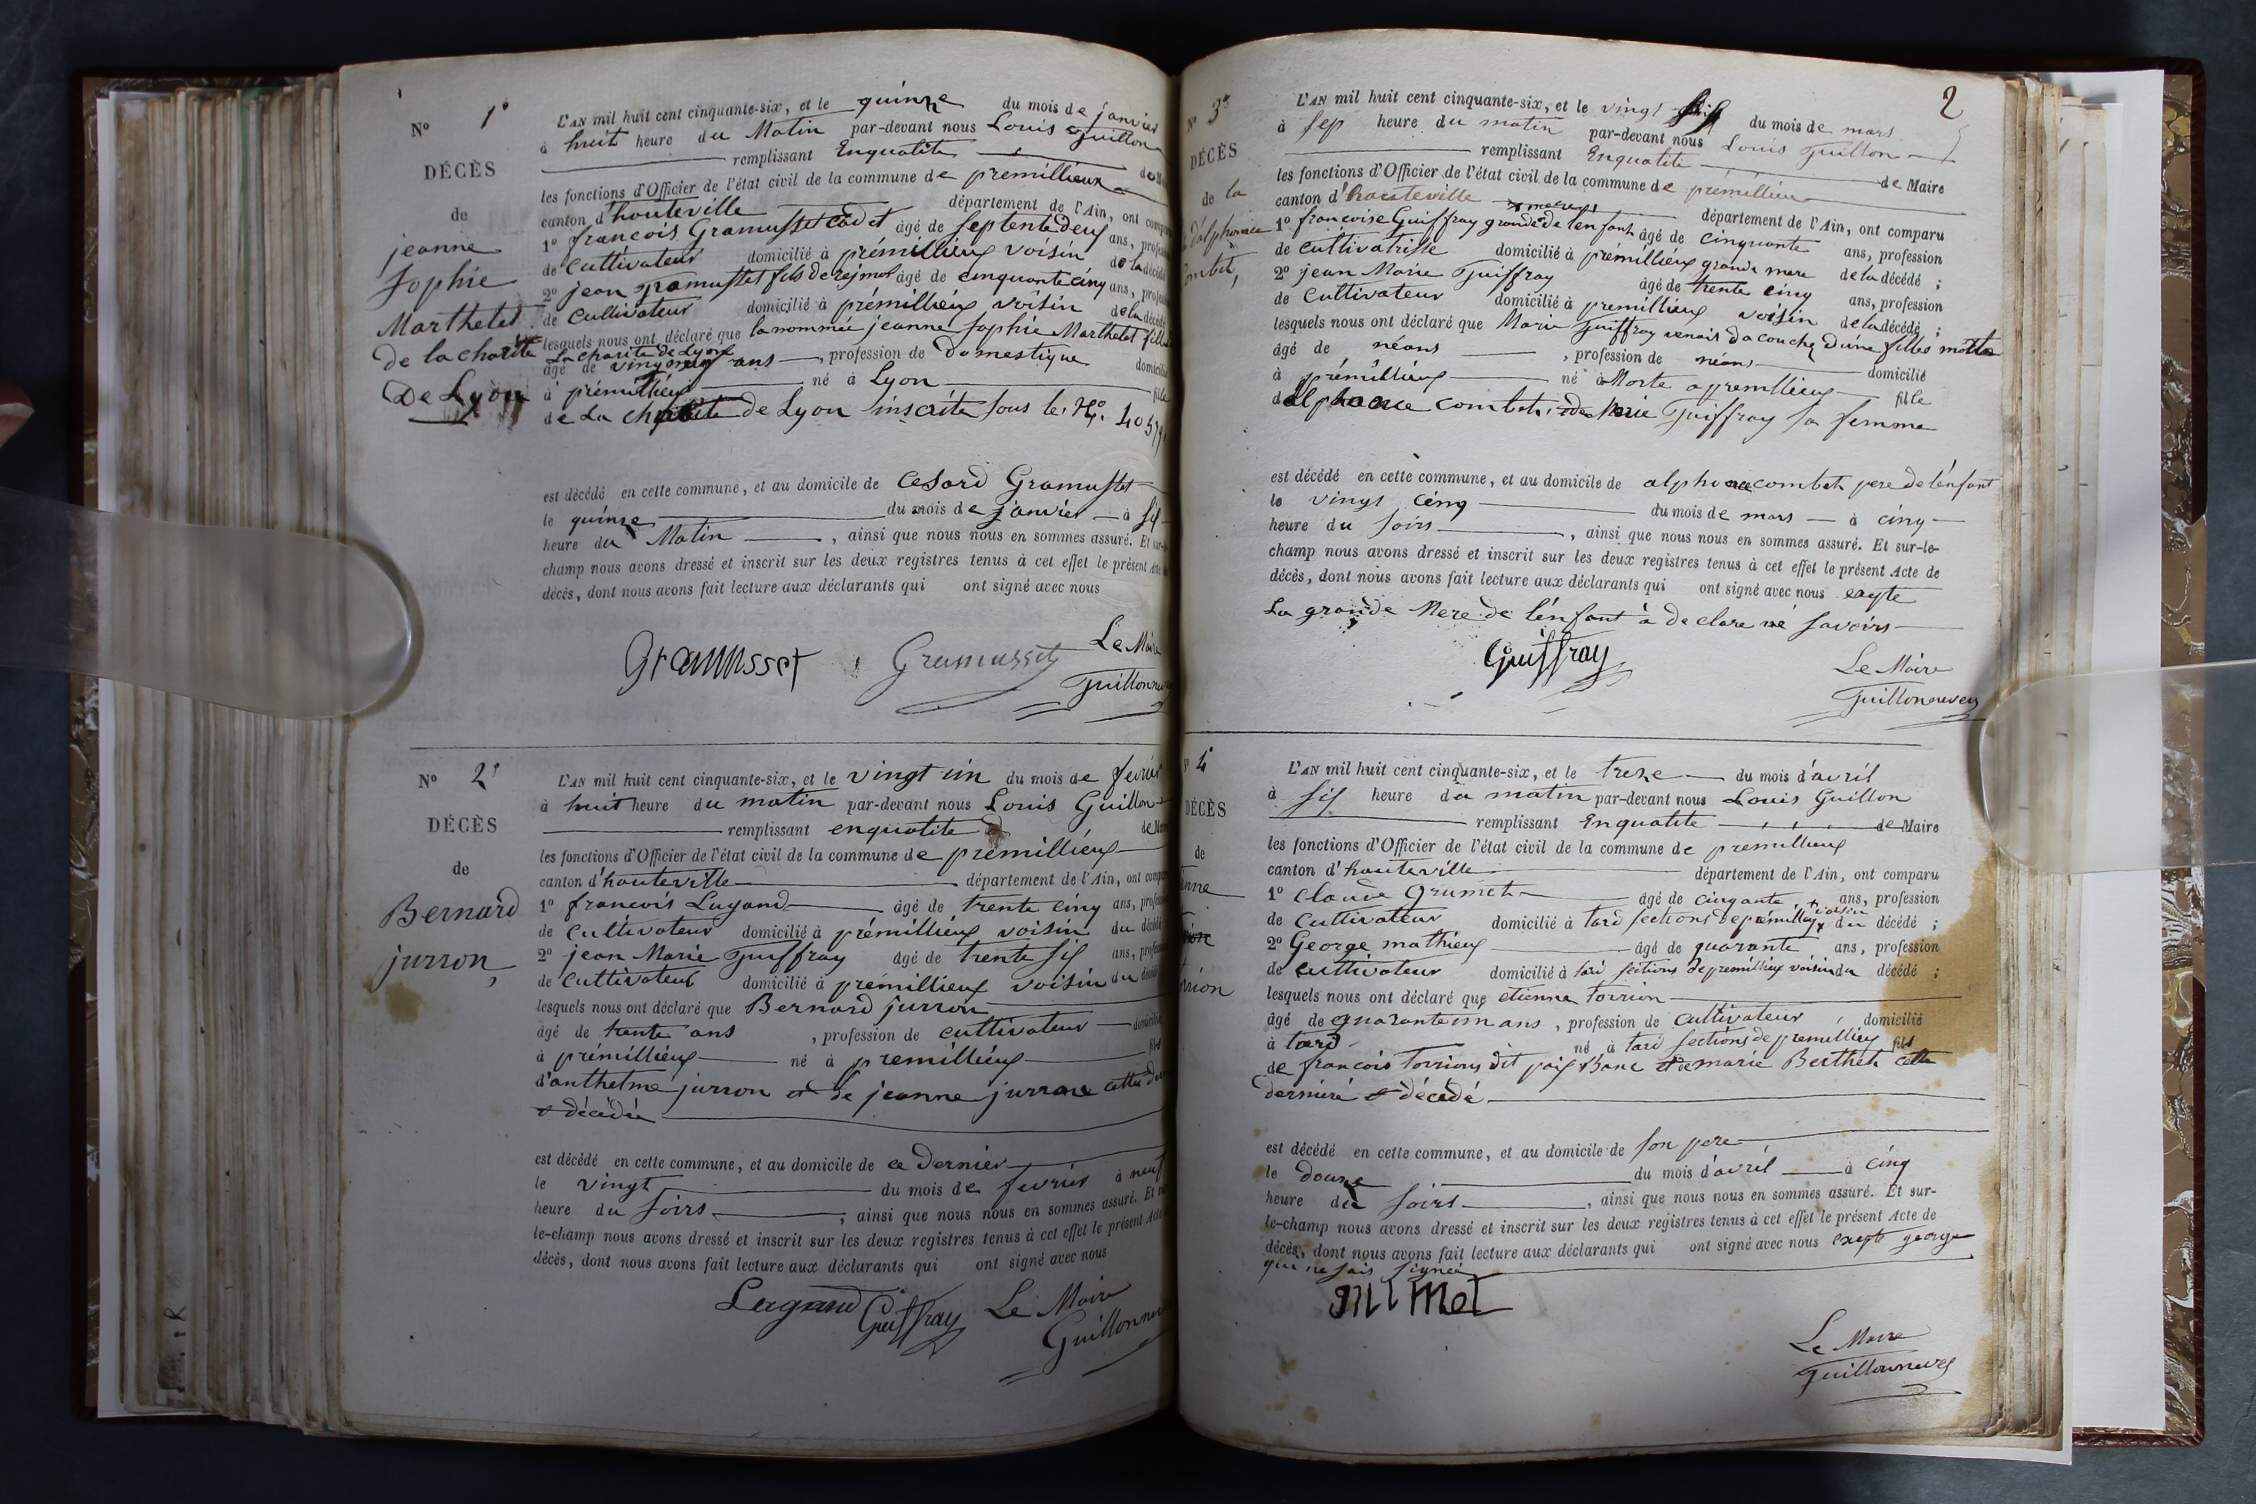 N° 1°
DÉCÈS
de
jeanne
Sophie
Marthelet
de la charité
De Lyon
L'AN mil huit cent cinquante-six, et le quinze du mois de janvier
à huit heure du Matin par-devant nous Louis Guillon
remplissant Enqualité de
les fonctions d'Officier de l'état civil de la commune de prémillieux
canton d'hauteville département de l'Ain, ont
1° françois Gramusset cadet âgé de septente deux ans,
de cultivateur domicilié à prémillieux voisin de la
2° jean gramusset fils de âgé de cinquante cinq ans,
de cultivateur domicilié à prémillieux voisin de la
lesquels nous ont déclaré que la nommée jeanne Sophie Marthelet fille
La charité de Lyon
âgé de ans, profession de Domestique
à prémillieux né à Lyon
de La charité de Lyon inscrite sous le N°.
est décédé en cette commune, et au domicile de Cesard Gramusset
le quinze du mois de janvier à six
heure du Matin, ainsi que nous nous en sommes assuré. Et
champ nous avons dressé et inscrit sur les deux registres tenus à cet effet le présent Acte
décès, dont nous avons fait lecture aux déclarants qui ont signé avec nous
Gramusset Gramusset Le Maire
N° 2°
DÉCÈS
de
Bernard
jurron,
L'AN mil huit cent cinquante-six, et le vingt un du mois de fevrier
à huit heure du matin par-devant nous Louis Guillon
remplissant enqualité
les fonctions d'Officier de l'état civil de la commune de prémillieux
canton d'hauteville département de l'Ain, ont
1° françois Lugand âgé de trente cinq ans,
de cultivateur domicilié à prémillieux voisin du
2° jean Marie Guiffray âgé de trente six ans,
de cultivateur domicilié à prémillieux voisin du
lesquels nous ont déclaré que Bernard jurron
âgé de trente ans, profession de cultivateur
à prémillieux né à premillieux
d'anthelme jurron et de jeanne jurrone cette
et décédée
est décédé en cette commune, et au domicile de ce dernier
le vingt du mois de fevrier à neuf
heure du soirs, ainsi que nous nous en sommes assuré. Et
le-champ nous avons dressé et inscrit sur les deux registres tenus à cet effet le présent
décès, dont nous avons fait lecture aux déclarants qui ont signé avec nous
Lugand Guiffray Le Maire
2
N° 3°
DÉCÈS
de la
L'AN mil huit cent cinquante-six, et le vingt six du mois de mars
à sep heure du matin par-devant nous Louis Guillon
remplissant Enqualité de Maire
les fonctions d'Officier de l'état civil de la commune de prémillieu
canton d'hauteville département de l'Ain, ont comparu
1° françoise Guiffray grande de l'enfant âgé de cinquante ans, profession
de cultivatrisse domicilié à prémillieux grande mere de la décédé ;
2° jean Marie Guiffray âgé de trente cinq ans, profession
de cultivateur domicilié à premillieux voisin de la décédé ;
lesquels nous ont déclaré que Marie Guiffray venais dacouchez d'une filles
âgé de néans, profession de néans domicilié
à prémillieux né à Morte a premillieux fille
dalphonce combet et de Marie Guiffray sa femme
est décédé en cette commune, et au domicile de alphonce combet pere de l'enfant
le vingt cinq du mois de mars à cinq
heure du soirs, ainsi que nous nous en sommes assuré. Et sur-le-
champ nous avons dressé et inscrit sur les deux registres tenus à cet effet le présent Acte de
décès, dont nous avons fait lecture aux déclarants qui ont signé avec nous
La grande Mere de l'enfant à declare né savoirs
Guiffray
Le Maire
4
DÉCÈS
de
L'AN mil huit cent cinquante-six, et le treze du mois d'avril
à six heure du matin par-devant nous Louis Guillon
remplissant Enqualité de Maire
les fonctions d'Officier de l'état civil de la commune de prémillieux
canton d'hauteville département de l'Ain, ont comparu
1° claude Grumet âgé de cinqante ans, profession
de cultivateur domicilié à tard sections de prémillieux voisin du décédé ;
2° George mathieux âgé de quarante ans, profession
de cultivateur domicilié à tard sections de premillieux voisin du décédé ;
lesquels nous ont déclaré que etienne torrion
âgé de quarante un ans, profession de cultivateur, domicilié
à tard né à tard sections de premillieux fils
de françois torrion dit et de marie Berthet cette
derniére et décédé
est décédé en cette commune, et au domicile de son pere
le douze du mois d'avril à cinq
heure du soirs, ainsi que nous nous en sommes assuré. Et sur-
le-champ nous avons dressé et inscrit sur les deux registres tenus à cet effet le présent Acte de
décès, dont nous avons fait lecture aux déclarants qui ont signé avec nous exepte george
qui ne sais signée
Le Maire